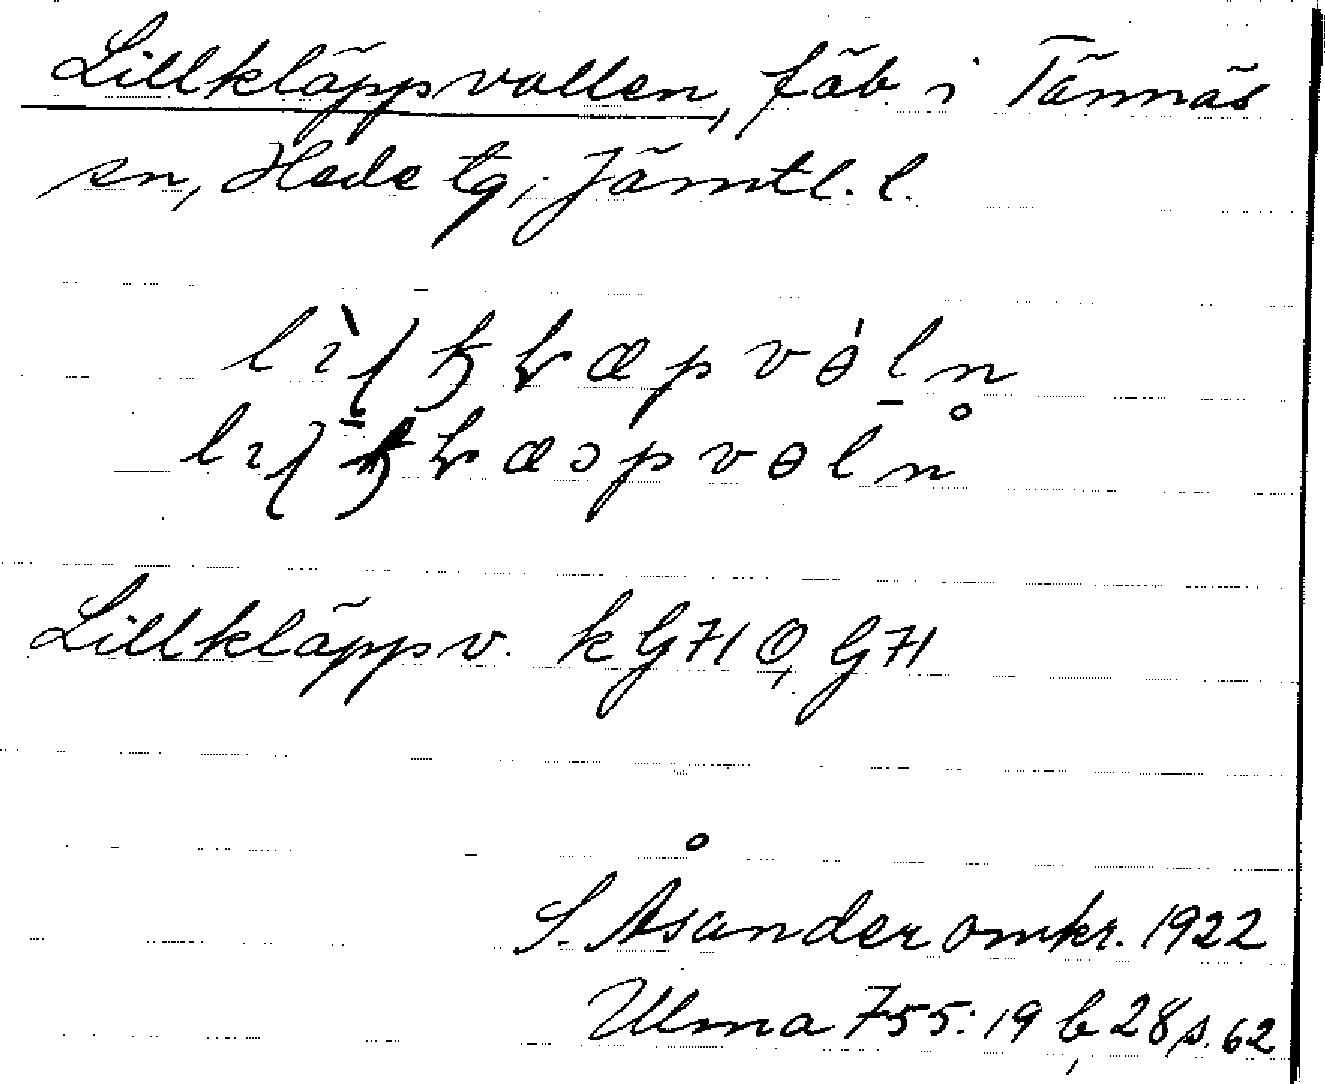 Lillkläppvallen, fäb. i Tännäs
sn, Hede tg, Jämtl. l.
Lillkläppv. k G71 Ö, G71
S. Åsander omkr. 1922
Ulma 755: 19 b, 28 s. 62